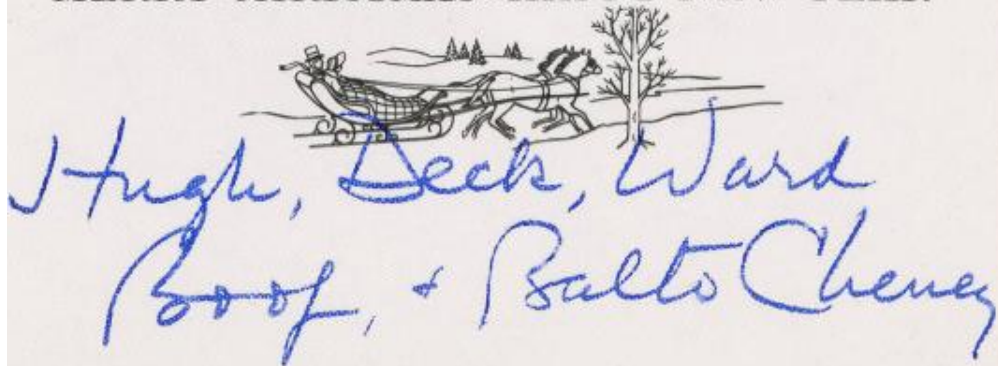 Hugh, Deck, Ward
Boof, + Balto Cheney